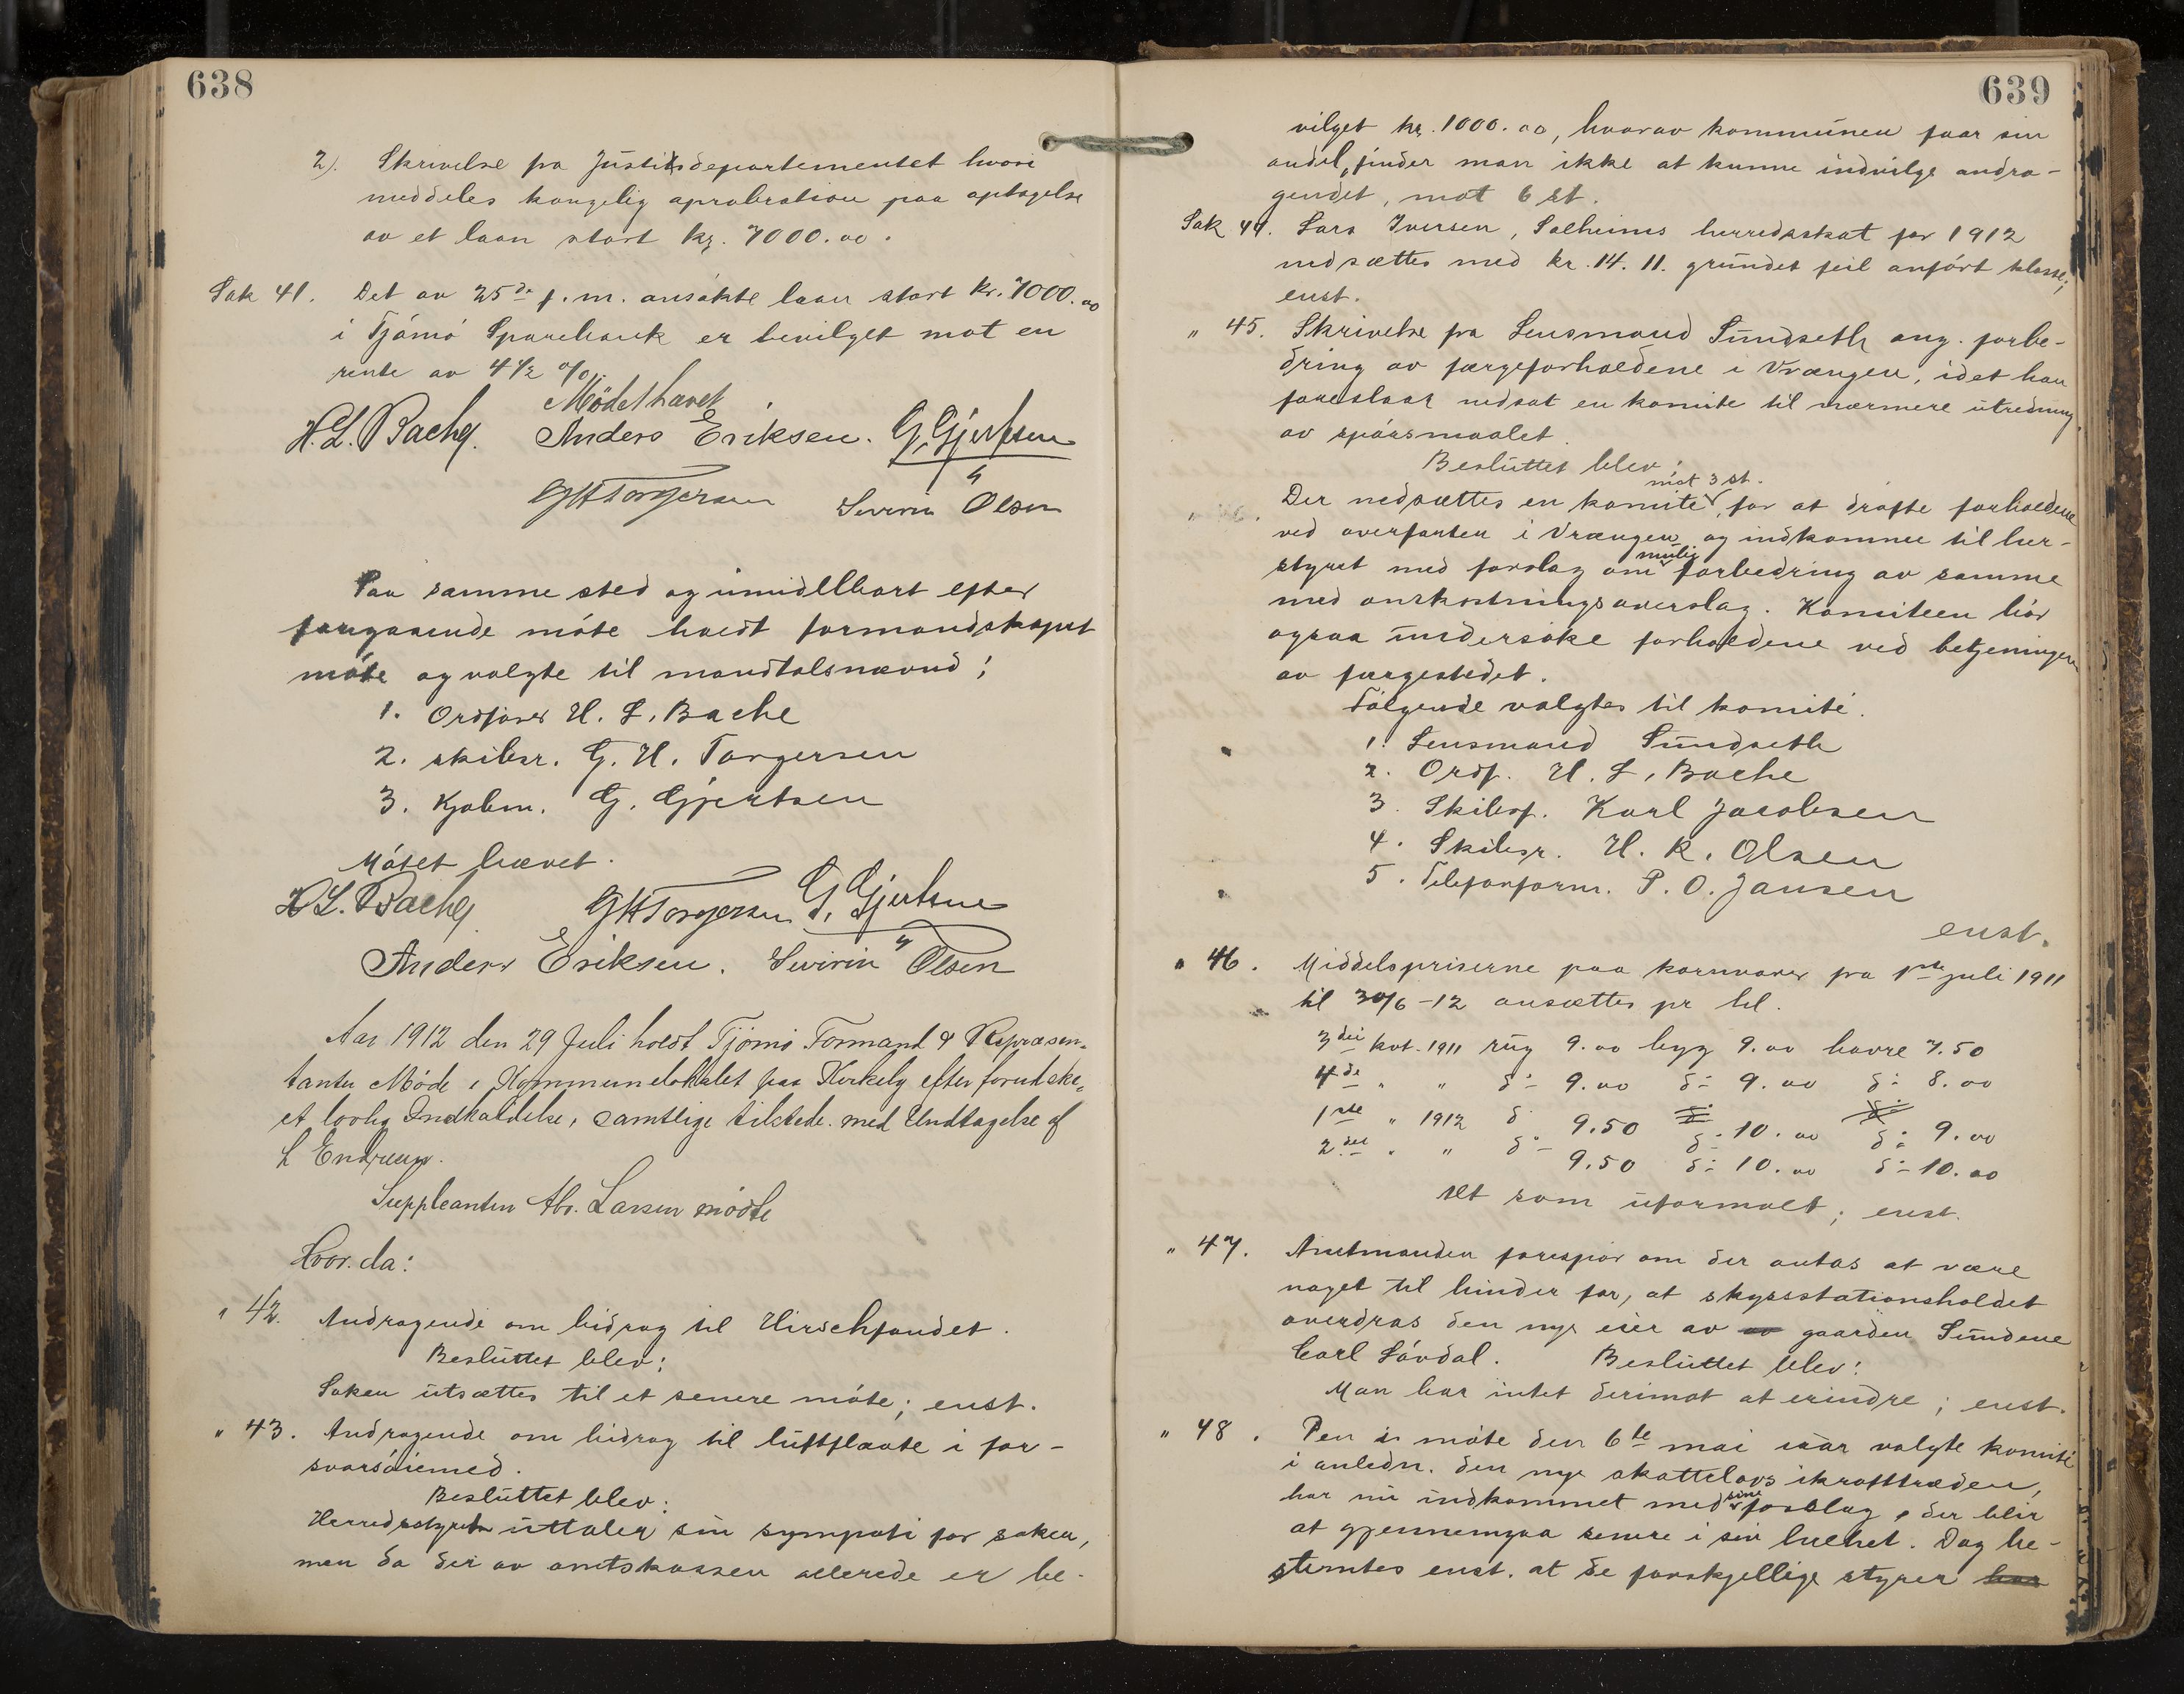 638
2). Skrivelse fra Justitsdepartementet hvori
meddeles kongelig aprobration paa optagelse
av et laan stort kr. 7000.00.
Sak 41. Det av 25de f.m. ansøkte laan stort kr. 7000.00
i Tjømø Sparebank er bevilget mot en
rente av 4½ %.
Mødet hævet.
H. L. Bache. Anders Eriksen. G. Gjertsen
G H Torgersen Severin Olsen
Paa samme sted og umidlbart efter
forrgaaende møte holdt formandskapet
møte og valgte til mandtalsnævnd;
1. Ordfører H. L. Bache
2. skibsr. G. H. Torgersen
3. Kjøbm. G. Gjertsen
Møtet hævet.
H L. Bache G H Torgersen G. Gjertsen
Anders Eriksen. Severin Olsen
Aar 1912 den 29 Juli holdt Tjømø Formand & Repræsen-
tanter Møde i Kommunelokalet paa Kirkeby efter forudske-
et lovlig Indkaldelse, samtlige tilstede med Undtagelse af
L Endresen.
Suppleanten Ab. Larsen mødte
Hvor da:
" 42. Andragende om bidrag til Hirschfondet.
Besluttet blev:
Saken utsættes til et senere møte; enst.
" 43. Andragende om bidrag til luftflaate i for-
svarsøiemed.
Besluttet blev:
Herredsstyret uttaler sin sympati for saken,
men da der av amtskassen allerede er be-
639
vilget kr. 1000.00, hvorav kommunen faar sin
andel, finder man ikke at kunne indvilge andra-
gendet, mot 6 st.
Sak 44. Lars Iversen, Solheims herredsskat for 1912
nedsættes med kr. 14.11. grundet feil anført klasse;
enst.
" 45. Skrivelse fra Lensmand Sundseth ang. forbe-
dring av færgeforholdene i Vrængen, idet han
foreslaar nedsat en komite til nærmere utredning
av spørsmaalet.
Besluttet blev:
mot 3 st.
Der nedsættes en komite for at drøfte forholdene
ved overfarten i Vrængen og indkomme til her-
mulig
styret med forslag om forbedring av samme
med omkostningsoverslag. Komiteen bør
ogsaa undersøke forholdene ved betjeningen
av færgestedet.
Følgende valgtes til komité.
1. Lensmand Sundseth
2. Ordf. H. L. Bache
3. Skibsf. Karl Jacobsen
4. Skibsr. H. K. Olsen
5. Telefonform. P. O. Jansen
enst.
" 46. Middelspriserne paa kornvarer fra 1ste juli 1911
til 30/6-12 ansættes pr hl.
3die kvt. 1911 rug 9.00 byg 9.00 havre 7.50
4de " " do 9.00 do 9.00 do 8.00
1ste " 1912 do 9.50 do 10.00 do 9.00
2det " " do 9.50 do 10.00 do 10.00
Alt som uformalt; enst.
" 47. Amtmanden forespør om der antas at være
noget til hinder for, at skysstationsholdet
overdras den nye eier av gaarden Sundene
Carl Løvdal. Besluttet blev:
Man har intet derimot at erindre; enst.
" 48. Den i møte den 6te mai iaar valgte komité
i anledn. den nye skattelovs ikrafttræden,
sine
har nu indkommet med forslag, der blir
at gjennemgaa senere i sin helhet. Dog be-
stemtes enst. at de forskjellige styrer har